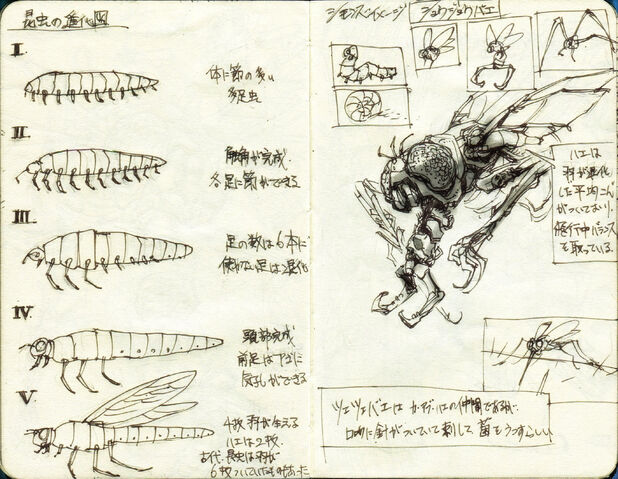 昆虫の進化図
I.
体に節の多い
多足虫
II.
触角が完成.
各足に節ができる
III.
足の数は6本に
使わない足は退化
IV.
頭部完成
前足は下さに
気孔ができる
V.
4枚羽が生える
ハエは2枚.
古代、昆虫は羽が
6枚ついていたものもあった
ショウジョウバエ
ハエは
羽が退化
した平均こん
がついており、
飛行中バランス
を取っている.
ツェツェバエは カ、アブ、ハエの仲間であるが、
口吻に針がついていて刺して、菌をうつすらしい